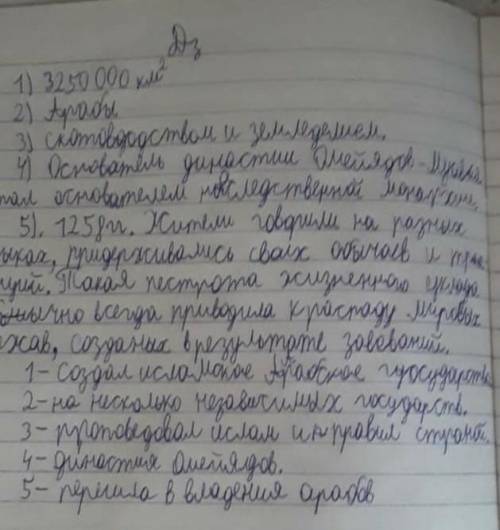 Дз
1) 3250000 км²
2) Арабы
3) скотоводством и земледелием.
4) Основатель династии Омейядов-
тал основателем наследственной
5). 1258гг. Жители говорили на разных
зыках, придерживались своих обычаев и
ций. Такая пестрота жизненного уклада
обычно всегда приводила к распаду мировых
ржав, созданых в результате завоеваний.
1- Создал исламское Арабское государство
2- на несколько независимых государств.
3- проповедовал ислам и правил страной
4- династия Омейядов.
5- перешла в владения арабов